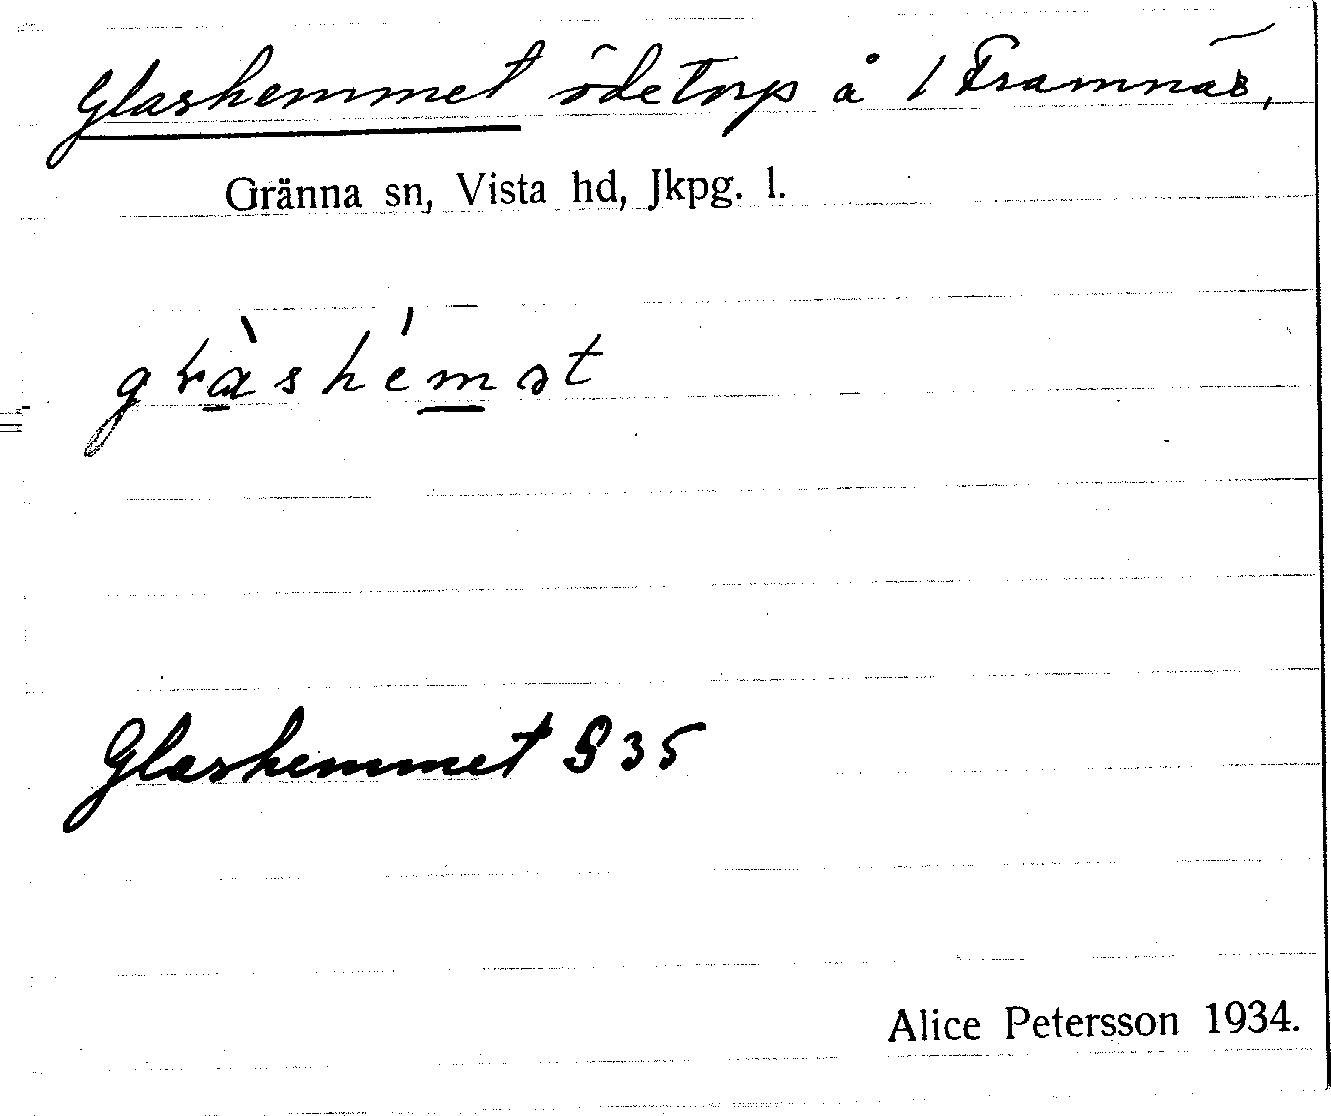 Glashemmet ödetorp å 1 Framnäs,
Gränna sn, Vista hd, Jkpg. l.
Glashemmet S 35
Alice Petersson 1934.